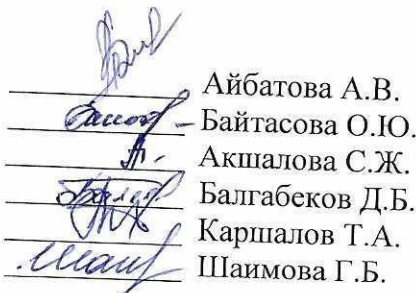 Айбатова А.В.
Байтасова О.Ю.
Акшалова С.Ж.
Балгабеков Д.Б.
Каршалов Т.А.
Шаимова Г.Б.